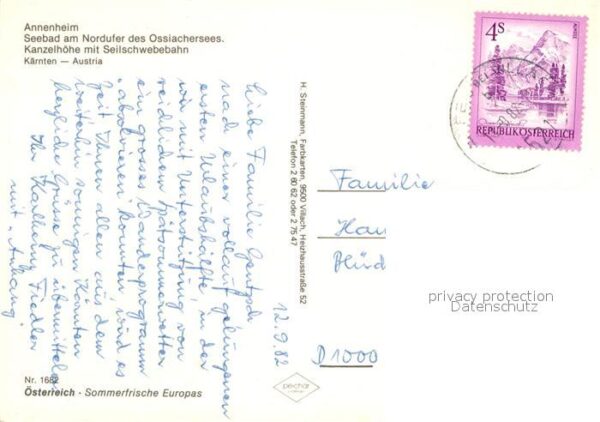 Annenheim
Seebad am Nordufer des Ossiachersees.
Kanzelhöhe mit Seilschwebebahn
Kärnten — Austria
12.9.82
Liebe Familie
nach einer vollauf gelungenen
ersten Urlaubshälfte, in der
wir mit Unterstützung von
reidlichem Spätsommerwetter
ein grosses Wanderprogramm
"absolvieren" konnten, wird es
Zeit Ihnen allen aus dem
weiterhin sonnigen Kärnten
herzliche Grüsse zu übermitteln
Ihr Fiedler
mit "Anhang"
Nr. 1662
Österreich · Sommerfrische Europas
H. Steinmann, Farbkarten, 9500 Villach, Heizhausstraße 52
Telefon 2 60 62 oder 2 75 47
4S
REPUBLIK ÖSTERREICH
Familie
Hau
Blüd
D 1000
privacy protection
Datenschutz